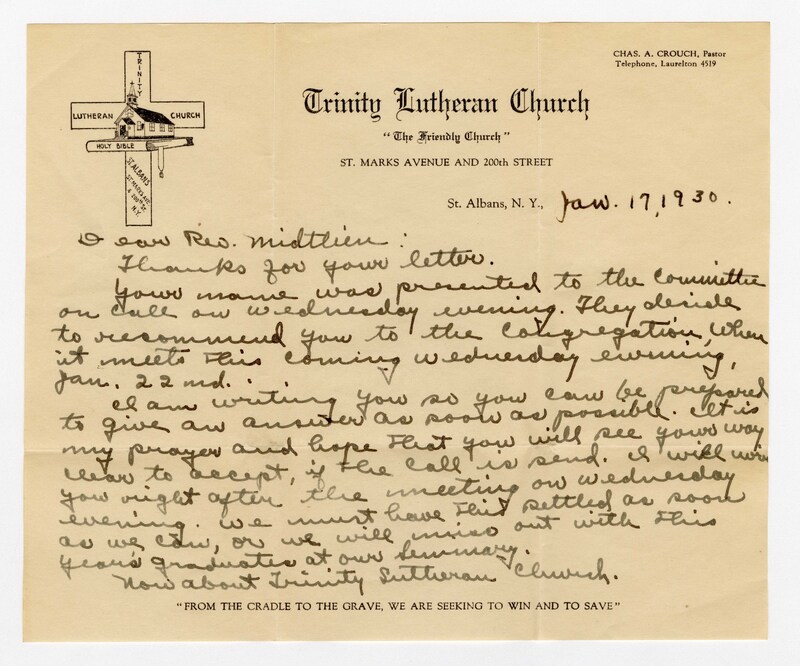 CHAS. A. CROUCH, Pastor
Telephone, Laurelton 4519
TRINITY
LUTHERAN CHURCH
HOLY BIBLE
ST. ALBANS
ST. MARKS AVE.
& 200TH ST.
N.Y.
Trinity Lutheran Church
"The Friendly Church"
ST. MARKS AVENUE AND 200th STREET
St. Albans, N. Y., Jan. 17, 1930.
Dear Rev. Midtlien:
Thanks for your letter.
Your name was presented to the Committee
on Call on Wednesday evening. They deside
to recommend you to the Congregation, When
it meets this coming Wednesday evening,
Jan. 22nd.
I am writing you so you can be prepared
to give an answer as soon as possible. It is
my prayer and hope that you will see your way
clear to accept, if the call is send. I will wire
you right after the meeting on Wednesday
evening. We must have this settled as soon
as we can, or we will miss out with this
years graduates at our Seminary.
Now about Trinity Lutheran Church.
"FROM THE CRADLE TO THE GRAVE, WE ARE SEEKING TO WIN AND TO SAVE"